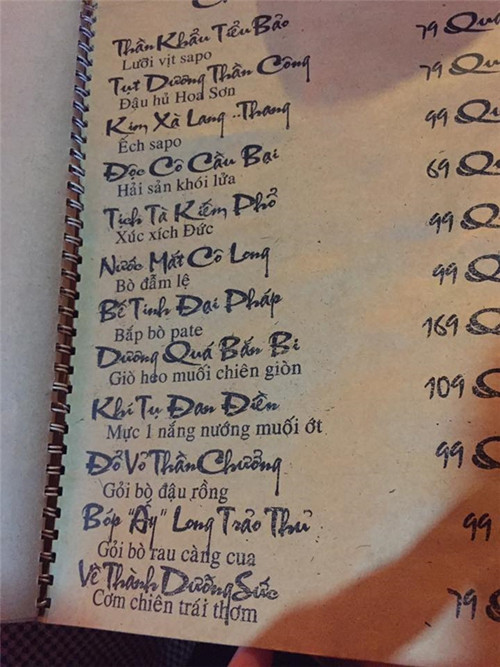 Thần Khẩu Tiểu Bảo 79 Quá
Lưỡi vịt sapo
Tụt Dương Thần Công 79 Qu
Đậu hủ Hoa Sơn
Kim Xà Lang ..Thang 99 Qu
Ếch sapo
Độc Cô Cầu Bại 69 Qu
Hải sản khói lửa
Tịch Tà Kiếm Phổ 99 Qu
Xúc xích Đức
Nước Mắt Cô Long 99 Qu
Bò đẫm lệ
Bế Tinh Đại Pháp 169 Q
Bắp bò pate
Dương Quá Bắn Bi 109 Q
Giò heo muối chiên giòn
Khí Tụ Đan Điền 99 Q
Mực 1 nắng nướng muối ớt
Đổ Vỏ Thần Chưởng 99 Q
Gỏi bò đậu rồng
Bóp "Ấy" Long Trảo Thủ 99
Gỏi bò rau càng cua
Về Thành Dưỡng Sức 79 Q
Cơm chiên trái thơm